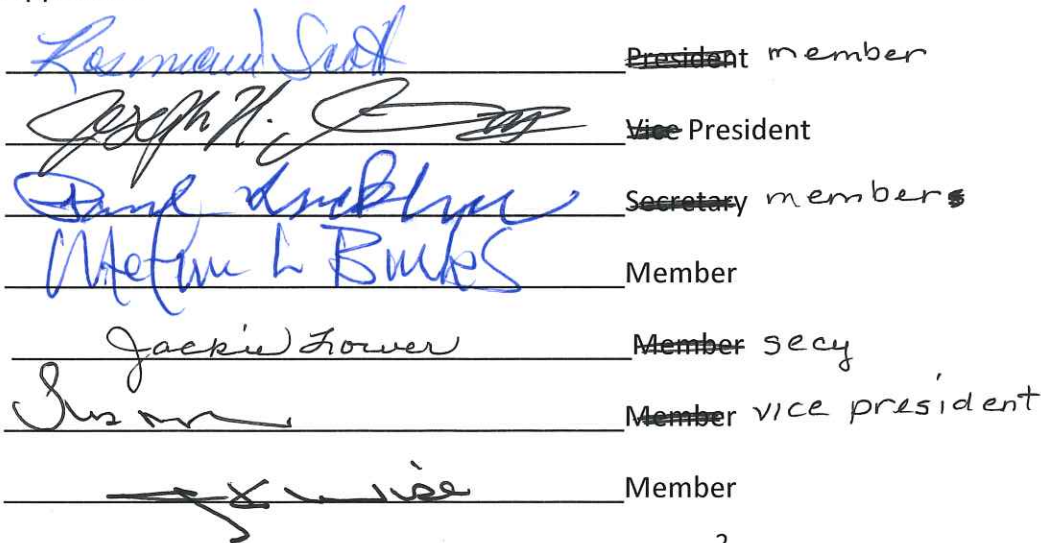 Rosemarie Scott President member
Joseph H. Vice President
Secretary members
Melvin L Burks Member
Jackie Lower Member secy
Susan Member vice president
Member
2